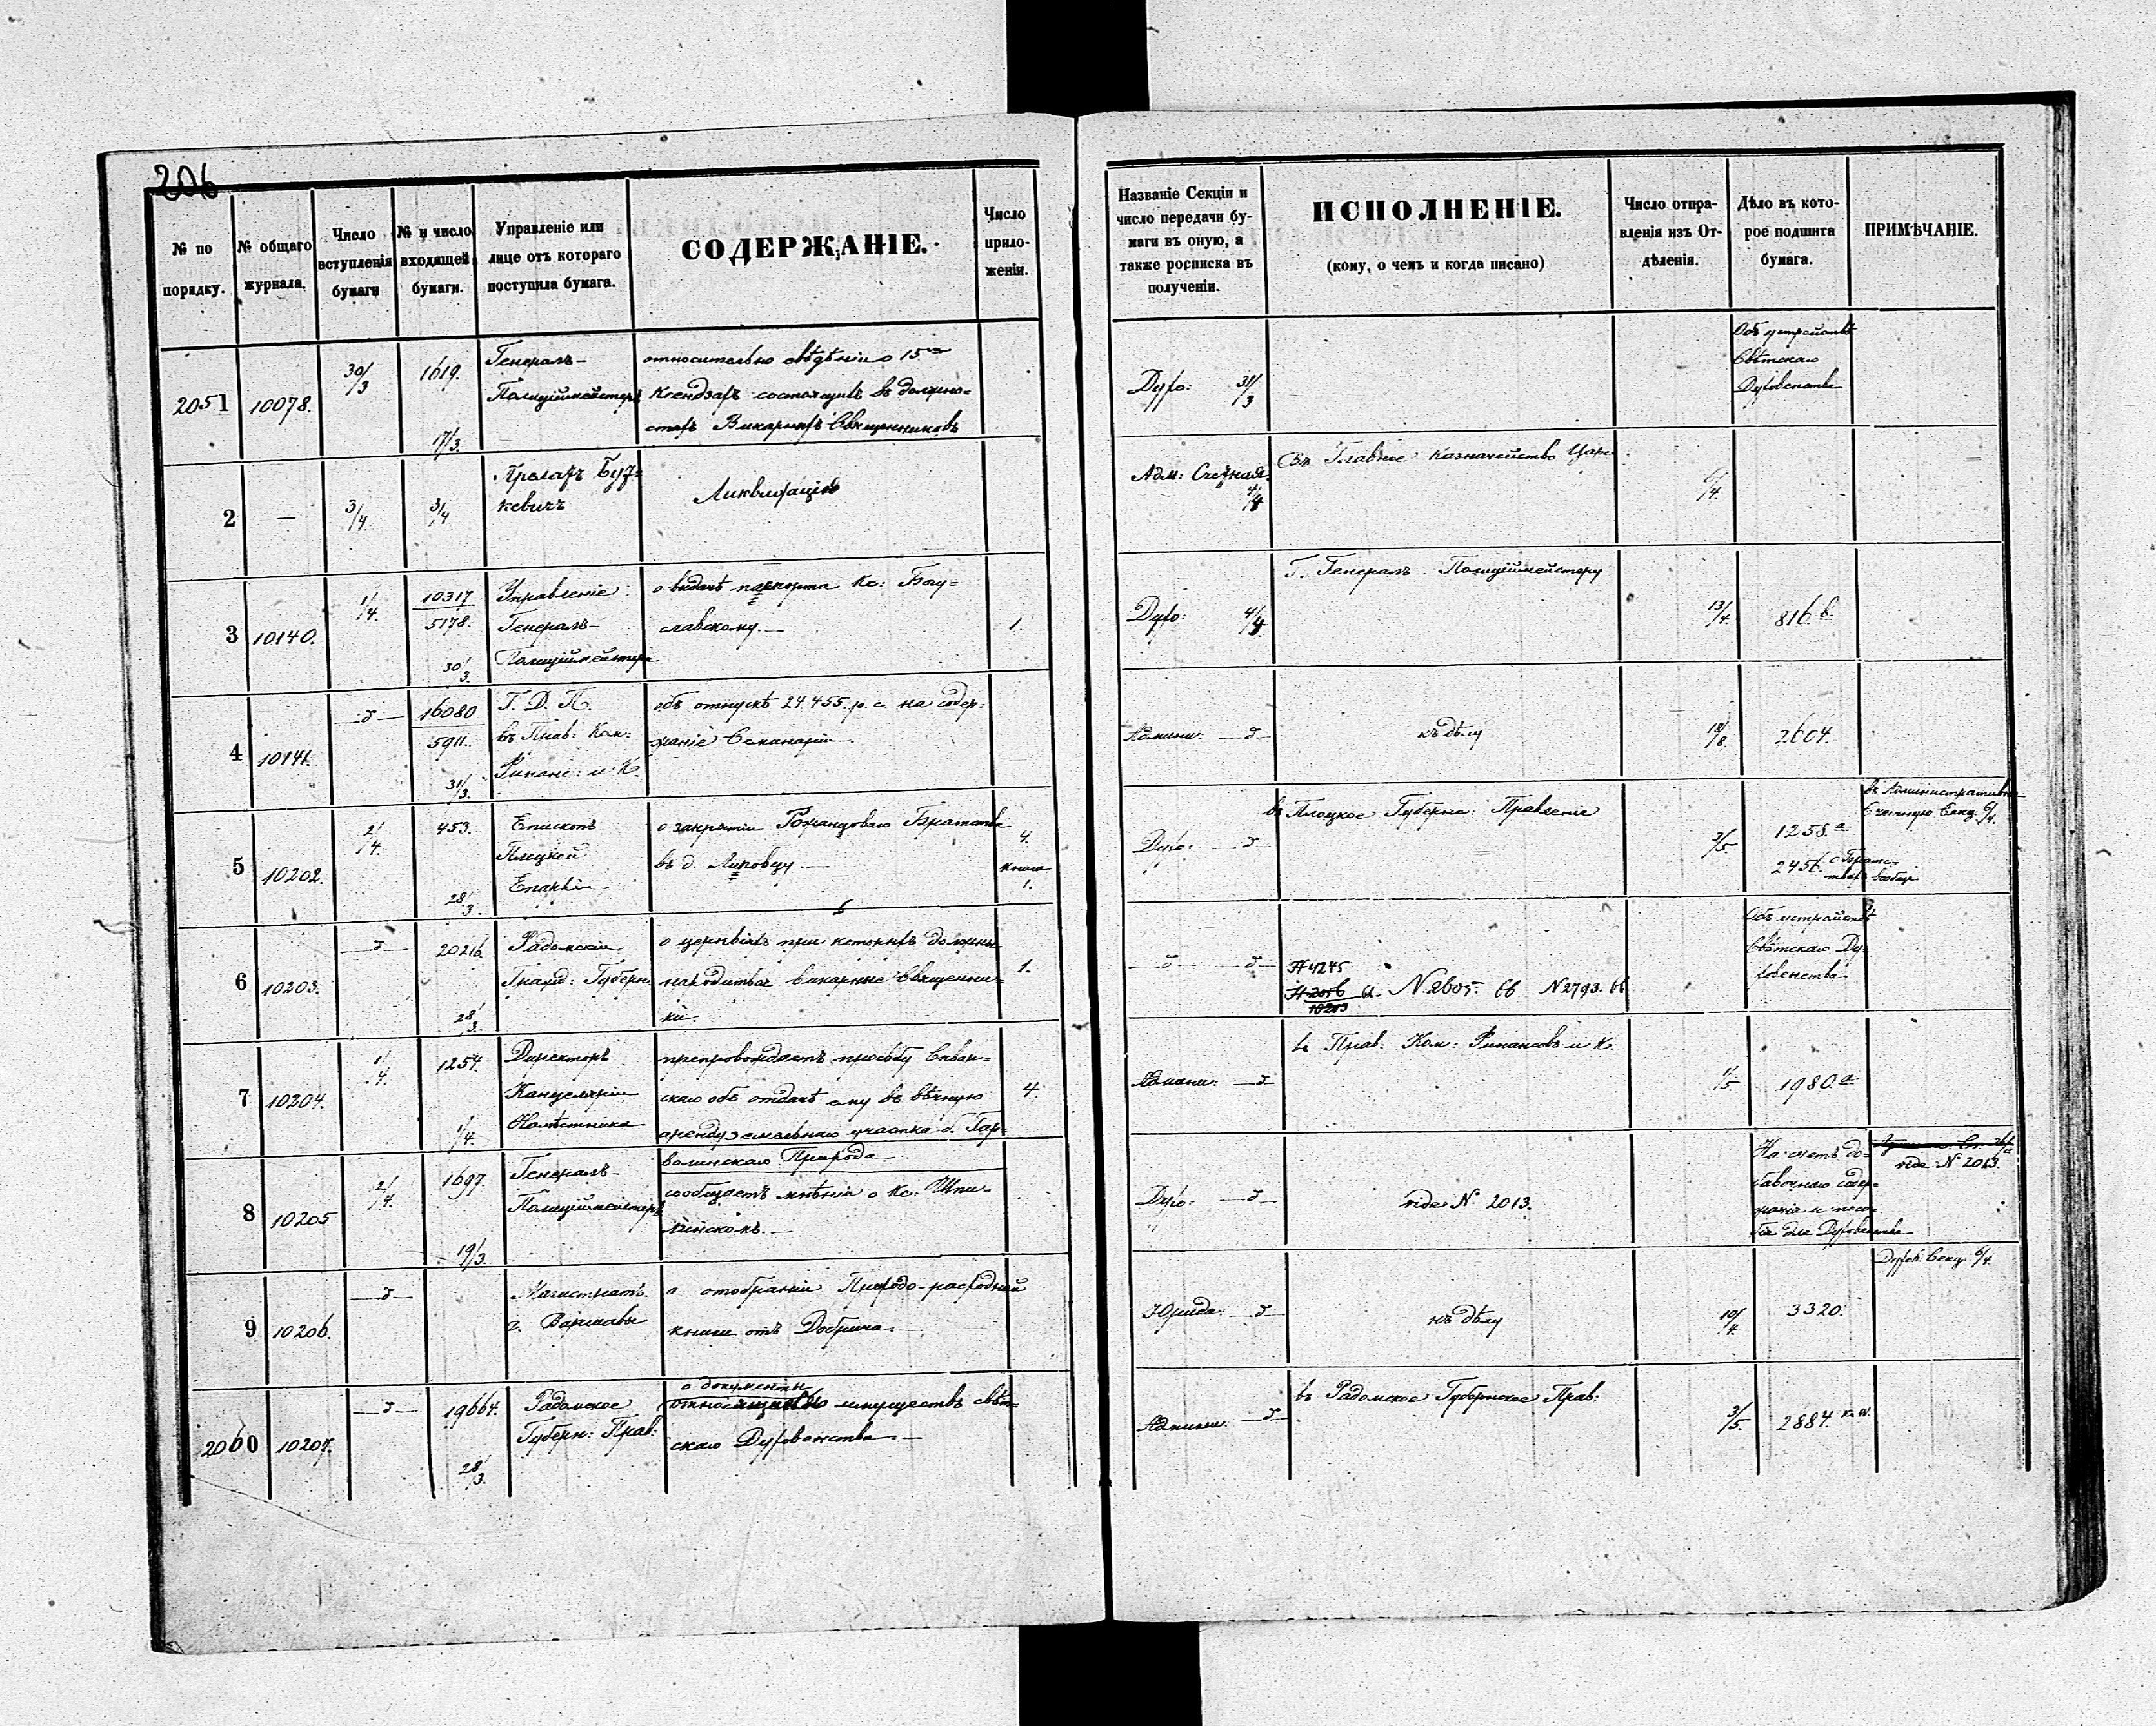 206
№ по порядку.
№ общаго журнала.
Число вступленія бумаги
№ и число входящей бумаги.
Управленіе или лице отъ котораго поступила бумага.
СОДЕРЖАНІЕ.
Число приложеніи.
Названіе Секціи и число передачи бумаги въ оную, а также росписка въ полученіи.
ИСПОЛНЕНІЕ.
(кому, о чемъ и когда писано)
Число отправленія изъ Отдѣленія.
Дѣло въ которое подшита бумага.
ПРИМѢЧАНІЕ.
2051
10078.
30/3
1619.
17/3.
Генералъ-
Полиціймейстеръ
относительно свѣдѣніи о 15
Ксендзахъ состоящихъ въ должно=
стяхъ Викарныхъ Священниковъ
Духо: 31/3
Объ устройствѣ
Свѣтскаго
Духовенства
2
—
3/4.
3/4
Прелатъ Буд=
кевичъ
Ликвидацію
Адм: Счетная 4/4
Въ Главное Казначейство Царс.
/4.
3
10140.
1/4.
10317
5178.
30/3.
Управленіе
Генералъ-
Полиціймейстера
о выдачѣ паспорта Кс: Богу=
славскому.—
1.
Духо: 4/4
Г. Генералъ Полиціймейстеру
13/4.
816 б.
4
10141.
16080
5911.
31/3.
Г. Д. П.
въ Прав: Ком:
Финанс: и К.
объ отпускѣ 24.455. р. с. на содер=
жаніе Семинаріи
Админ:
къ дѣлу
18/8.
2604.
5
10202.
2/4.
453.
28/3.
Епископъ
Плоцкой
Епархіи
о закрытіи Рожанцоваго Братства
въ д. Липовцу.—
4.
книга
1.
Духо:
въ Плоцкое Губернс: Правленіе
3/5.
1258.а
2456. о Братс
твахъ вообще
въ Административно
Счетную Секц. 6/4.
6
10203.
20216.
28/3.
Радомскій
Гражд: Губерн.
о церквахъ при которыхъ должны
находиться викарные Священни=
ки.
1.
№ 4245
№ 2056
10203
N. 2605. бб N 2793. бб
Объ устройствѣ
Свѣтскаго Ду=
ховенства.
7
10204.
1/4.
1254.
1/4.
Директоръ
Канцеляріи
Намѣстника
препровождаетъ просьбу
скаго объ отдачѣ ему въ вѣчную
аренду земельнаго участка б. Гар=
волинскаго Прихода
4.
Админ:
въ Прав: Ком: Финансовъ и К.
1/5
1980.а
8
10205
2/4.
1697.
19/3.
Генералъ-
Полиціймейстеръ
сообщаетъ мнѣніе о Кс: Шпи=
линскомъ.—
Духо:
vide N° 2013.
На счетъ до=
бавочнаго содер=
жанія и посо=
бія для Духовенства
vide N 2013.
9
10206.
Магистратъ
г. Варшавы
о отобраніи Приходо-расходной
книги отъ Добрича.—
Юриди:
къ дѣлу
10/4.
3320.
Духов: Секц. 6/4
2060
10207.
19664.
28/3.
Радомское
Губерн: Прав:
о документы
имуществъ свѣт=
скаго Духовенства.—
Админ:
въ Радомское Губернское Прав:
3/5.
2884.